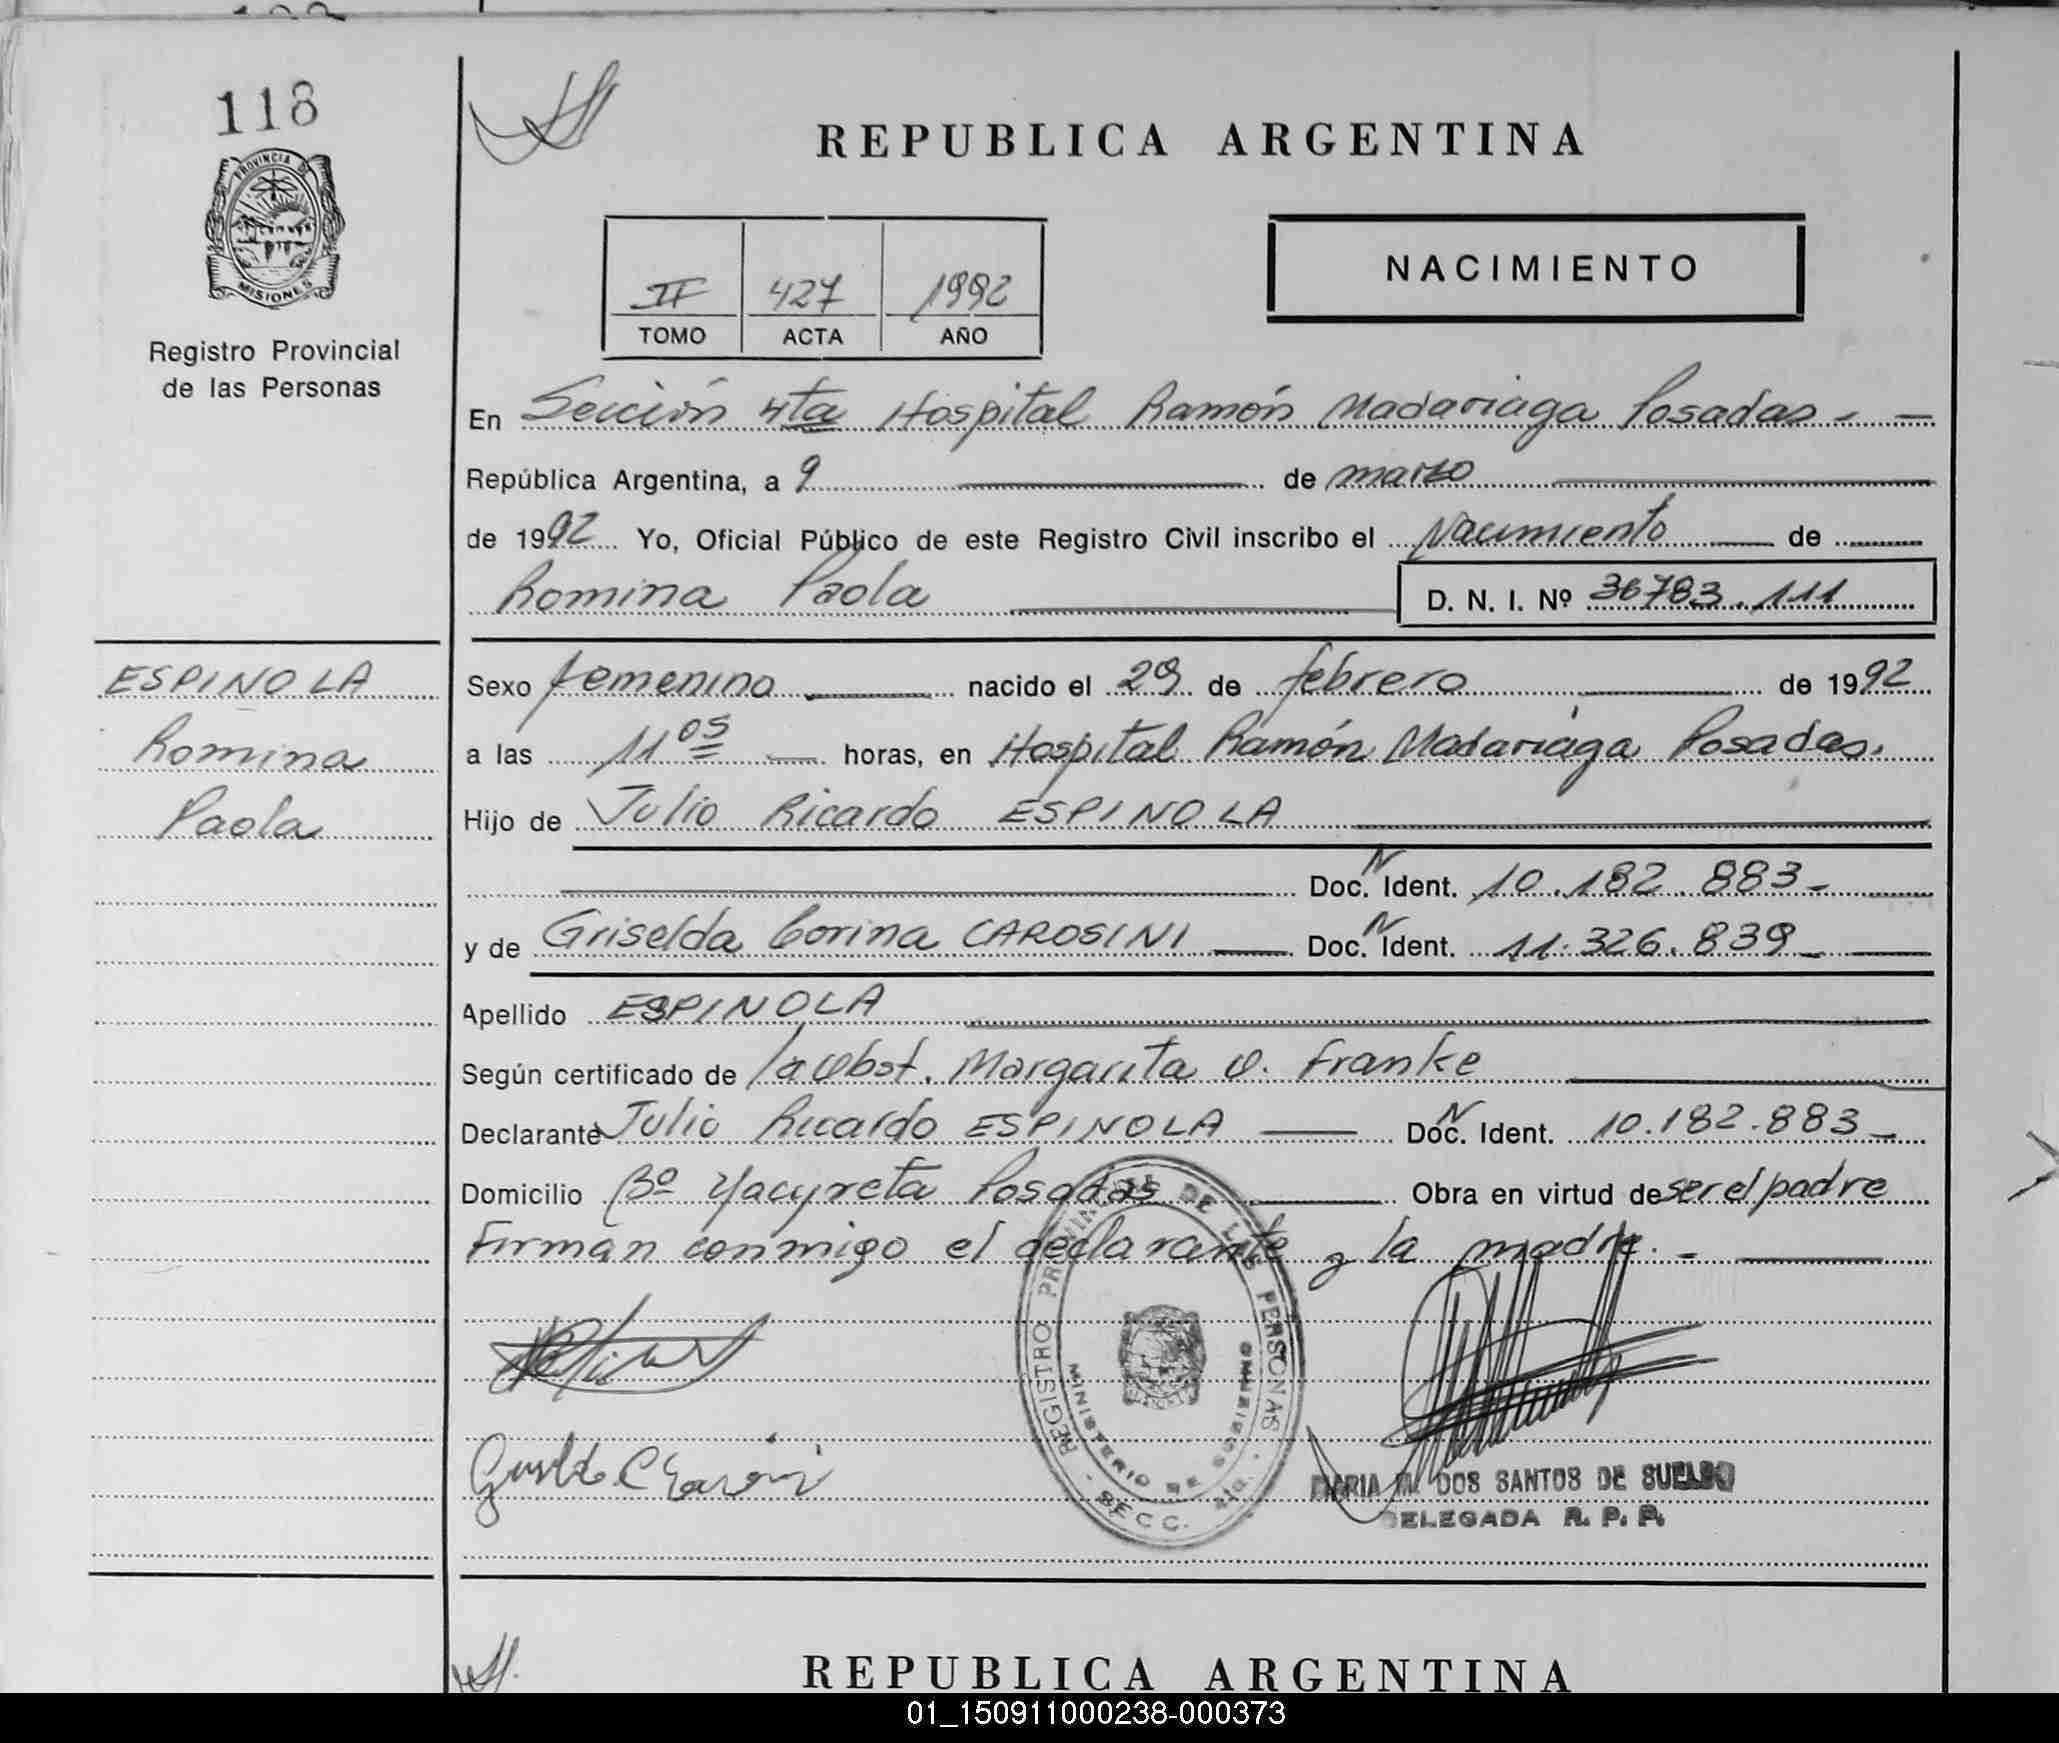 118
PROVINCIA DE
MISIONES
Registro Provincial
de las Personas
REPUBLICA ARGENTINA
II 427 1992
TOMO ACTA AÑO
NACIMIENTO
En Sección 4ta Hospital Ramón Madariaga Posadas. -
República Argentina, a 9 de marzo
de 1992 Yo, Oficial Público de este Registro Civil inscribo el Nacimiento de
Romina Paola D. N. I. Nº 36783.111
ESPINOLA
Romina
Paola
Sexo femenino nacido el 29 de febrero de 1992
a las 11 05 horas, en Hospital Ramón Madariaga Posadas.
Hijo de Julio Ricardo ESPINOLA
Doc. N Ident. 10.182.883-
y de Griselda Corina CAROSINI Doc. N Ident. 11.326.839-
Apellido ESPINOLA
Según certificado de la obst. Margarita O. Franke
Declarante Julio Ricardo ESPINOLA Doc. N Ident. 10.182.883-
Domicilio Bº Yacyreta Posadas Obra en virtud de ser el padre
Firman conmigo el declarante y la madre. -
REGISTRO PROVINCIAL DE LAS PERSONAS
MINISTERIO DE GOBIERNO
SECC. 4ta.
MARIA M. DOS SANTOS DE SUELDO
DELEGADA R. P. P.
REPUBLICA ARGENTINA
01_150911000238-000373